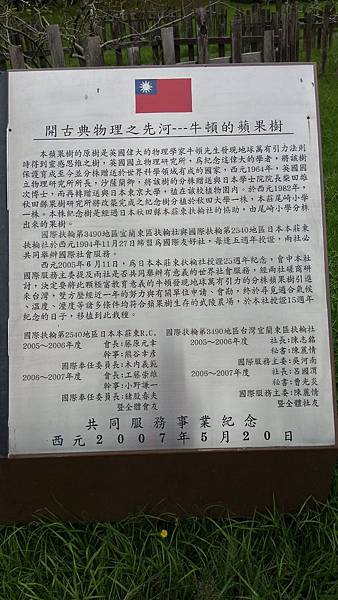 開古典物理之先河---牛頓的蘋果樹
本蘋果樹的原樹是英國偉大的物理學家牛頓先生發現地球萬有引力法則
時得到靈感思維之樹，英國國立物理研究所，為紀念這偉大的學者，將該樹
保護育成至今並分株贈送於世界科學領域有成的國家，西元1964年，英國國
立物理研究所所長，沙薩蘭卿，將該樹的分株贈送與日本學士院院長柴田雄
次博士，而再轉贈送與日本東京大學，植在該校植物園內。於西元1982年，
秋田縣果樹研究所將改良完成之紀念樹分植於秋田大學一株，本莊尾崎小學
一株。本株紀念樹是經過日本秋田縣本莊東扶輪社的協助，由尾崎小學分株
出來的果樹。
國際扶輪第3490地區宜蘭東區扶輪社與國際扶輪第2540地區日本本莊東
扶輪社於西元1994年11月27日締盟為國際友好社，每逢五週年授證，兩社必
共同舉辦國際社會服務。
西元2005年6月11日，為日本本莊東扶輪社授證25週年紀念，會中本社
國際服務主委提及兩社是否共同舉辦有意義的世界社會服務，經兩社磋商研
討，決定要將此顆極富教育意義的牛頓發現地球萬有引力的分株蘋果樹引進
來台灣，雙方歷經近一年的努力與有關單位申請、會勘，終於尋覓適合氣候
、溫度、溼度等諸多條件均符合蘋果樹生存的武陵農場，於本社授證15週年
紀念的日子，移植到此栽種。
國際扶輪第2540地區日本本莊東R.C.
2005～2006年度 會長:藤原元幸
幹事:熊谷幸彦
國際奉仕委員長:木內義範
2006～2007年度 會長:工藤崇雄
幹事:小野謙一
國際奉仕委員長:猪股春夫
暨全體會友
國際扶輪第3490地區台灣宜蘭東區扶輪社
2005～2006年度 社長:陳志銘
秘書:陳麗情
國際服務主委:黃河南
2006～2007年度 社長:呂國渭
秘書:曹光炎
國際服務主委:陳麗情
暨全體社友
共同服務事業紀念
西元2007年5月20日